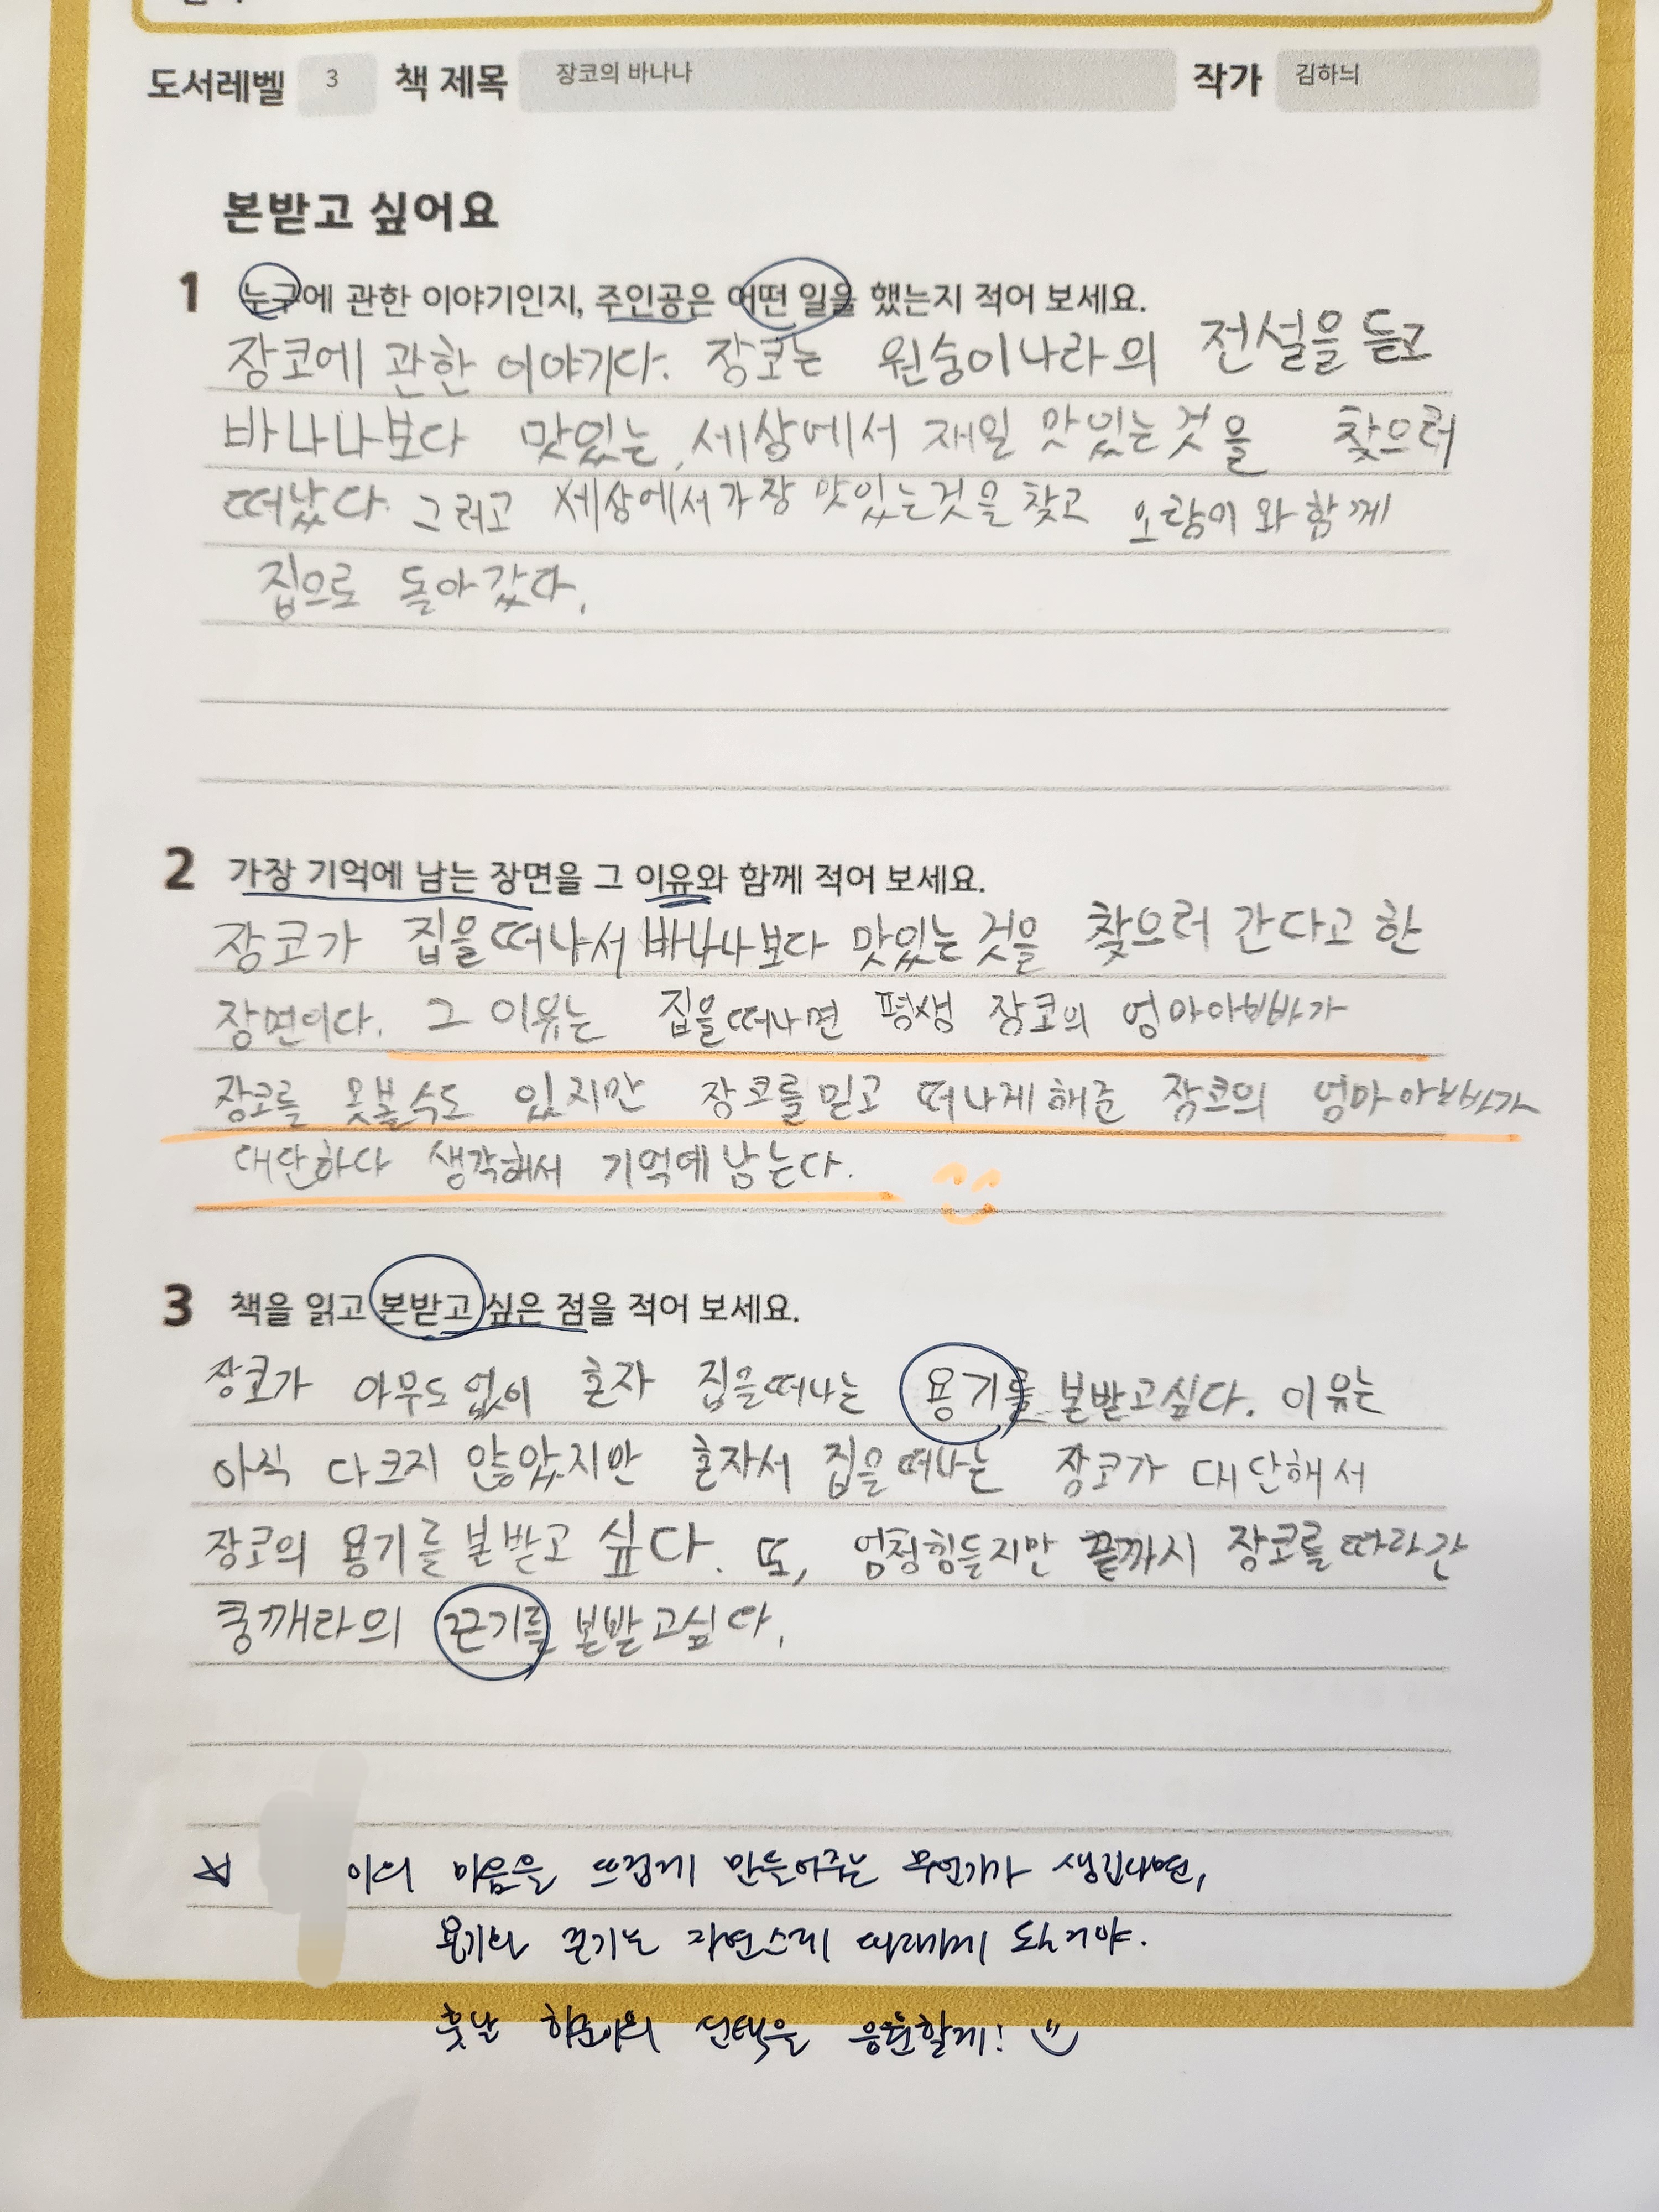 도서레벨 3 책 제목 장코의 바나나 작가 김하늬
본받고 싶어요
1 누구에 관한 이야기인지, 주인공은 어떤 일을 했는지 적어 보세요.
장코에 관한 이야기다. 장코는 원숭이나라의 전설을 듣고
바나나보다 맛있는, 세상에서 재일 맛있는것을 찾으러
떠났다. 그리고 세상에서가장 맛있는것을 찾고 오랑이와 함께
집으로 돌아갔다.
2 가장 기억에 남는 장면을 그 이유와 함께 적어 보세요.
장코가 집을떠나서 바나나보다 맛있는 것을 찾으러 간다고 한
장면이다. 그 이유는 집을떠나면 평생 장코의 엄마아빠가
장코를 못볼 수도 있지만 장코를믿고 떠나게해준 장코의 엄마아빠가
대단하다 생각해서 기억에남는다.
3 책을 읽고 본받고 싶은 점을 적어 보세요.
장코가 아무도없이 혼자 집을떠나는 용기를 본받고싶다. 이유는
아직 다크지 않았지만 혼자서 집을떠나는 장코가 대단해서
장코의 용기를 본받고 싶다. 또, 엄청힘들지만 끝까지 장코를따라간
쿵깨라의 끈기를 본받고싶다.
이의 마음을 뜨겁게 만들어주는 무언가가 생긴다면,
용기와 끈기는 자연스레 따라가게 될거야.
훗날 선택을 응원할게!